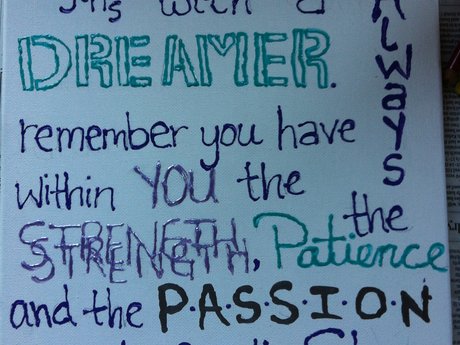 with a
DREAMER.
Always
remember you have
within YOU the
STRENGTH, the Patience
and the P·A·S·S·I·O·N